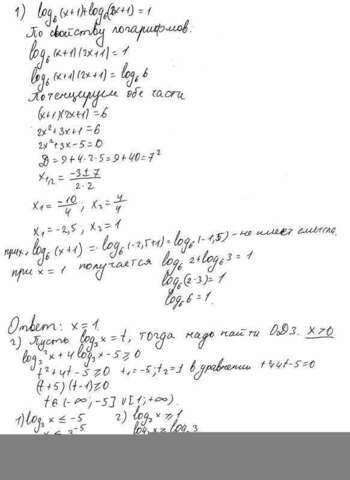 1) log₆(x+1)+log₆(2x+1)=1
По свойству логарифмов.
log₆(x+1)(2x+1)=1
log₆(x+1)(2x+1)=log₆6
Потенцируем обе части
(x+1)(2x+1)=6
2x²+3x+1=6
2x²+3x-5=0
D=9+4·2·5=9+40=7²
x₁/₂=(-3±7)/(2·2)
x₁=-10/4; x₂=4/4
x₁=-2,5, x₂=1
при x₁ log₆(x+1)=log₆(-2,5+1)=log₆(-1,5) - не имеет смысла.
при x=1 получается log₆2+log₆3=1
log₆(2·3)=1
log₆6=1.
Ответ: x=1.
2) Пусть log₃x=t, тогда надо найти ОДЗ. x>0
log₃²x+4log₃x-5≥0
t²+4t-5≥0 t₁=-5; t₂=1 в уравнении t²+4t-5=0
(t+5)(t-1)≥0
t∈(-∞;-5]∪[1;+∞).
1) log₃x≤-5 2) log₃x≥1
x≤3⁻⁵ log₃x≥log₃3